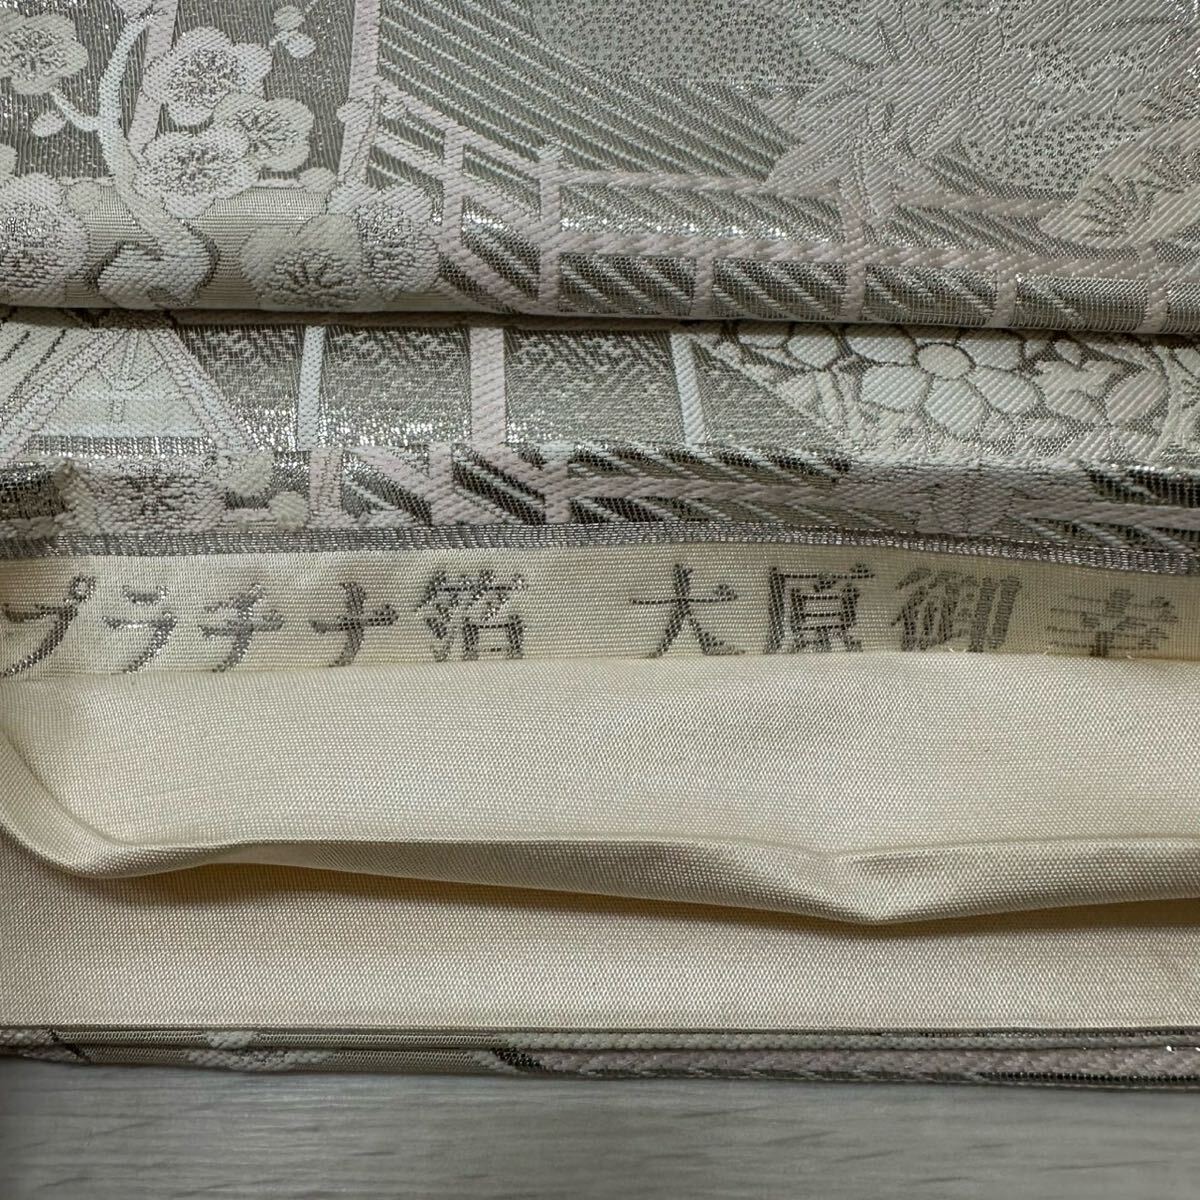 プラチナ箔 大原御幸